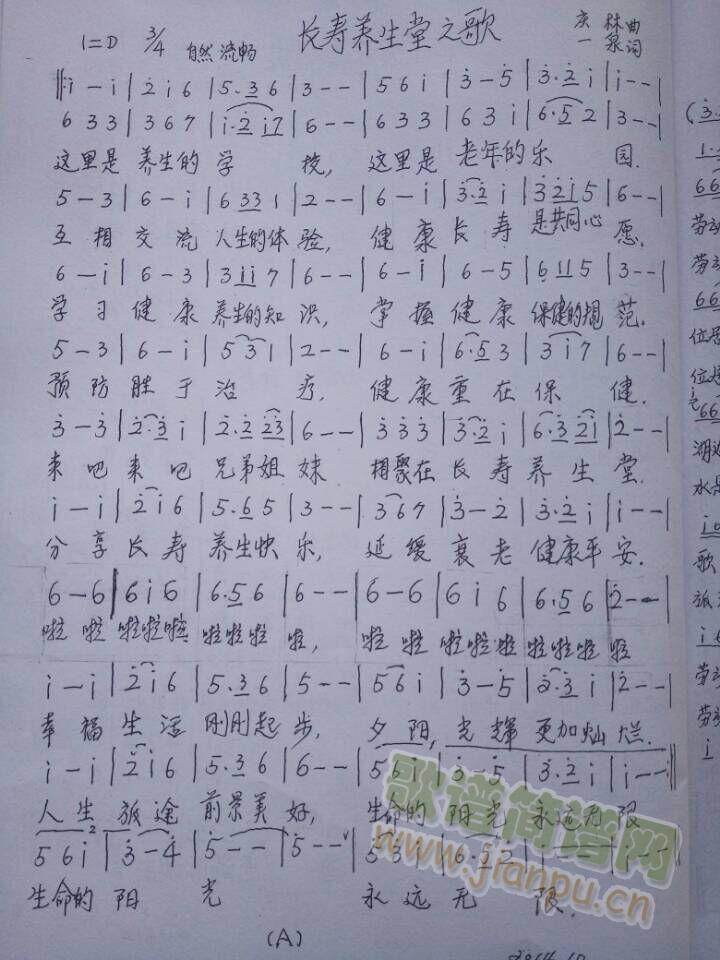 长寿养生堂之歌
1=D 3/4 自然 流畅
林 曲
一 泉 词
‖: i̇ - i̇ | 2̇ i̇ 6 | 5·3 6 | 3 - - | 5 6 i̇ | 3̇ - 5̇ | 3̇·2̇ i̇ | i̇ - - |
6 3 3 | 3 6 7 | i̇·2̇ i̇7 | 6 - - | 6 3 3 | 6 3 i̇ | 6·5 2 | 3 - - |
这里是 养生的 学 校, 这里是 老年的乐 园.
5 - 3 | 6 - i̇ | 6 33 1 | 2 - - | 6 - i̇ | 3̇·2̇ i̇ | 3̇ 2̇i̇ 5 | 6 - - |
互 相 交 流 人生的体 验, 健 康 长 寿 是共同心 愿.
6 - i̇ | 6 - 3 | 3 i̇i̇ 7 | 6 - - | 6 - i̇ | 6 - 5 | 6 11 5 | 3 - - |
学 习 健 康 养生的知 识, 掌 握 健 康 保健的规 范.
5 - 3 | 6 - i̇ | 5 3 1 | 2 - - | 6 - i̇ | 6·5 3 | 3 i̇ 7 | 6 - - |
预 防 胜 于 治 疗, 健 康 重 在 保 健.
3̇ - 3̇ | 2̇·3̇ i̇ | 2̇·2̇ 2̇3̇ | 6 - - | 3̇ 3̇ 3̇ | 3̇·2̇ i̇ | 6·3̇ 2̇i̇ | 2̇ - - |
来 吧 来 吧 兄弟姐 妹 相聚在 长 寿 养 生 堂.
i̇ - i̇ | 2̇ i̇ 6 | 5·6 5 | 3 - - | 3 6 7 | 3̇ - 2̇ | 3̇·2̇ i̇ | i̇ - - |
分 享 长 寿 养生快 乐, 延 缓 衰 老 健康平 安.
6 - 6 | 6 i̇ 6 | 6·5 6 | 6 - - | 6 - 6 | 6 i̇ 6 | 6·5 6 | 2̇ - - |
啦 啦 啦啦啦 啦啦啦 啦, 啦 啦 啦啦啦 啦啦啦 啦
i̇ - i̇ | 2̇ i̇ 6 | 5·3 6 | 5 - - | 5 6 i̇ | 3̇ - 5̇ | 2̇·3̇ i̇ | 2̇ - - |
幸 福 生 活 刚刚起 步, 夕 阳, 光 辉 更加灿 烂.
i̇ - i̇ | 2̇ i̇ 6 | 5·3 6 | 6 - - | 5 6 i̇ | 3̇ - 5̇ | 3̇·2̇ i̇ | i̇ - - :‖
人 生 旅 途 前景美 好, 生命的 阳 光 永远无 限
5 6 i̇ | 3̇ - 4̇ | 5̇ - - | 5̇ - - |
生命的 阳 光 永 远 无 限.
(A)
歌谱简谱网
www.jianpu.cn